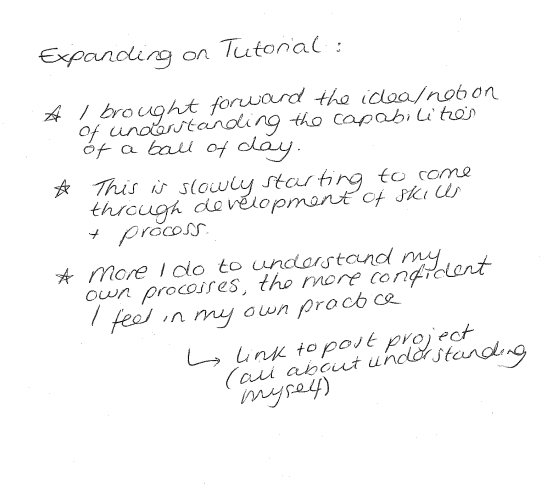 Expanding on Tutorial :
☆ I brought forward the idea/notion
of understanding the capabilities
of a ball of clay.
☆ This is slowly starting to come
through development of skills
+ process.
☆ More I do to understand my
own processes, the more confident
I feel in my own practice
↳ link to past project
(all about understanding
myself)